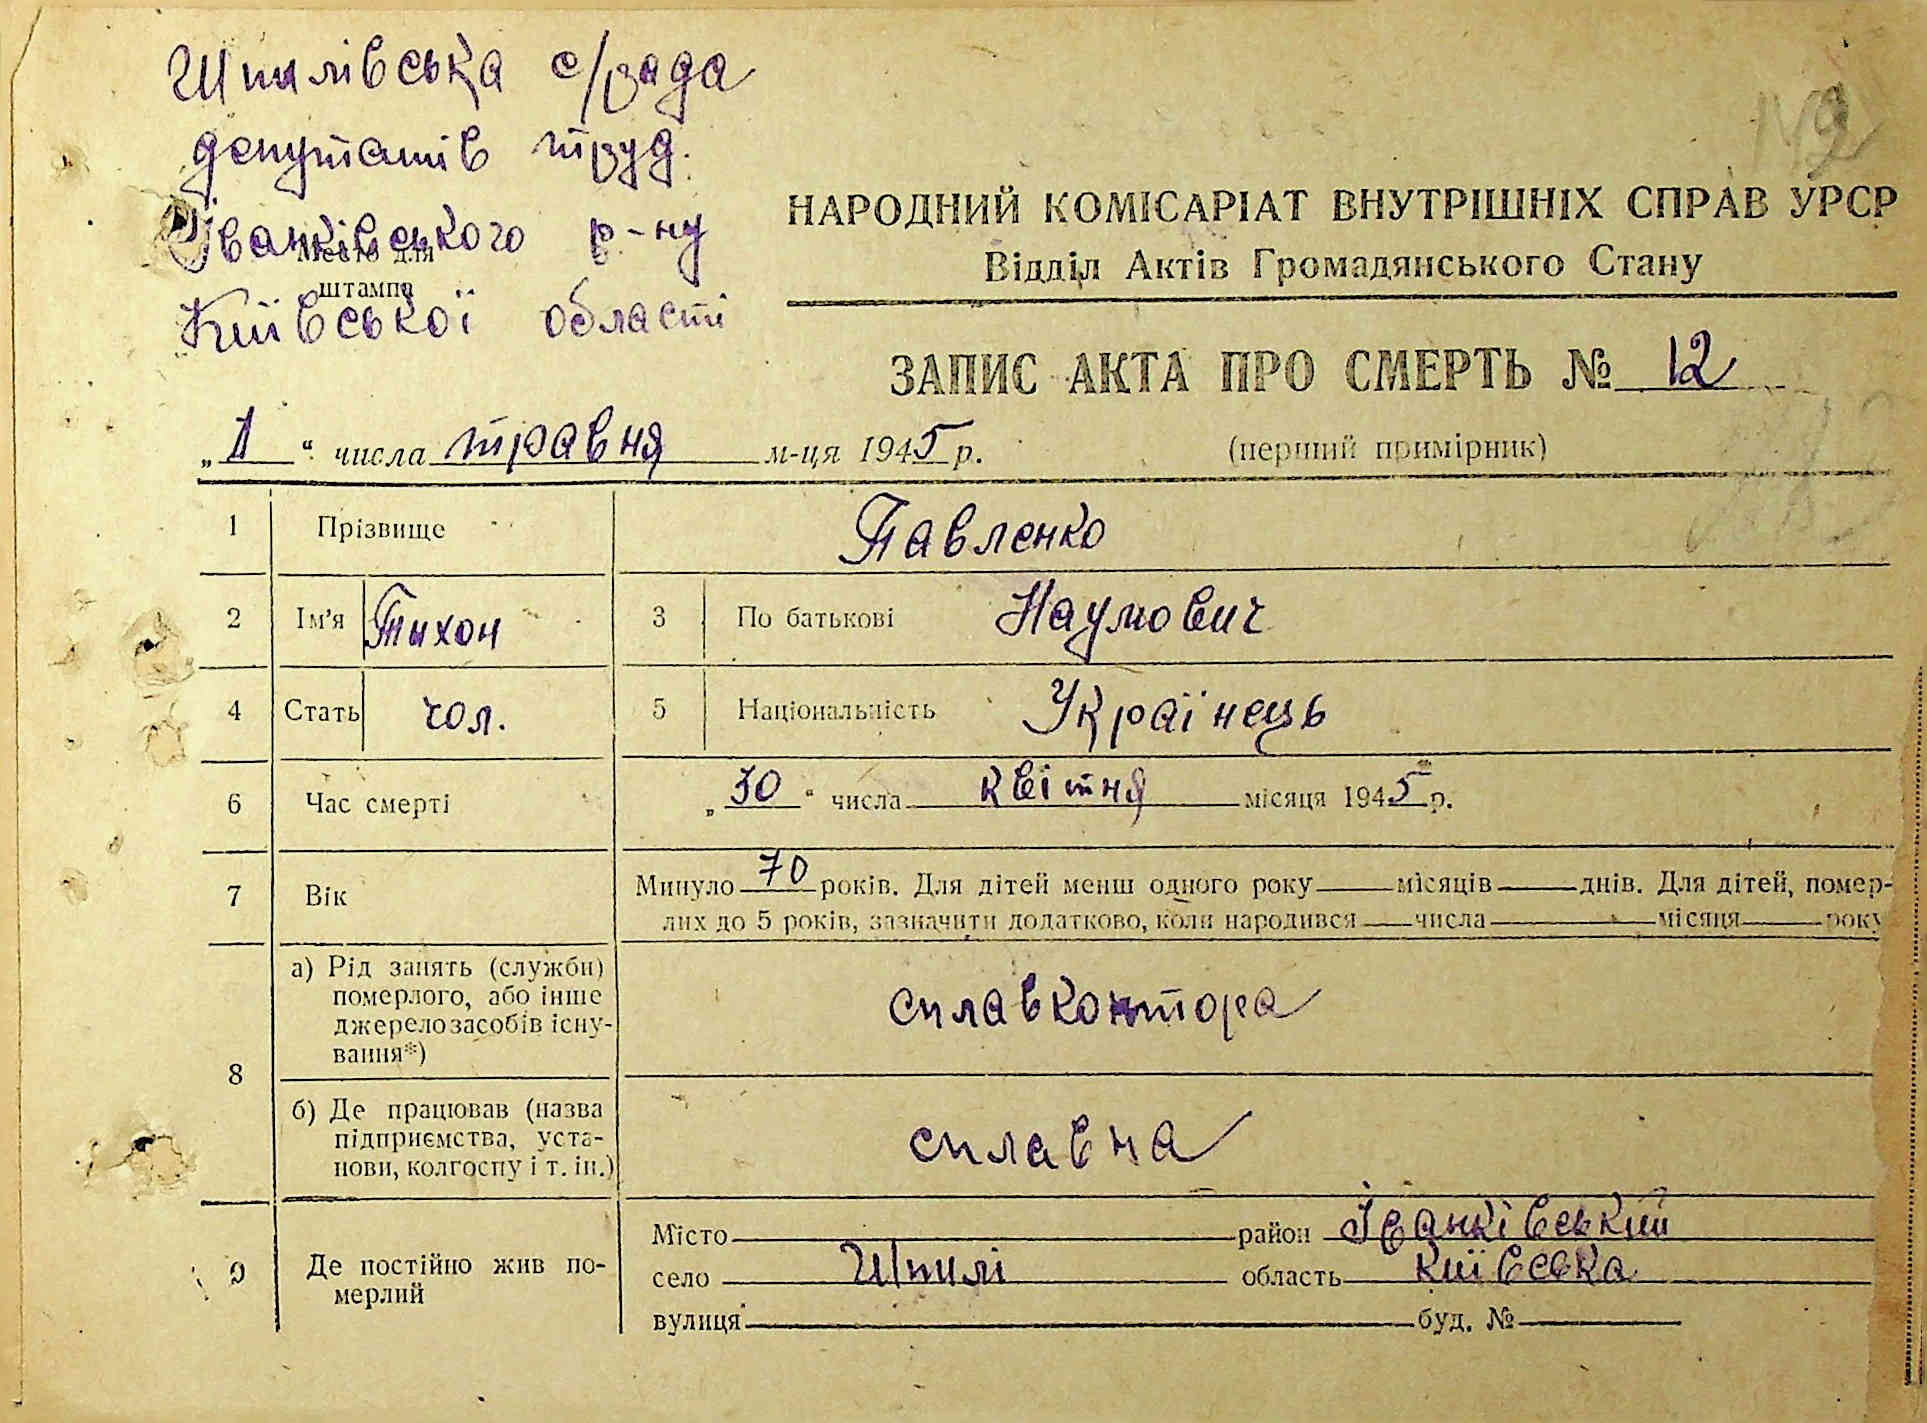 Шпилівська с/рада
депутатів труд.
Іванківського р-ну
Місце для
штампа
Київської області
НАРОДНИЙ КОМІСАРІАТ ВНУТРІШНІХ СПРАВ УРСР
Відділ Актів Громадянського Стану
ЗАПИС АКТА ПРО СМЕРТЬ № 12
„1“ числа травня м-ця 1945 р.
(перший примірник)
1 Прізвище Павленко
2 Ім'я Тихон 3 По батькові Наумович
4 Стать чол. 5 Національність Українець
6 Час смерті „30“ числа квітня місяця 1945 р.
7 Вік Минуло 70 років. Для дітей менш одного року місяців днів. Для дітей, помер-
лих до 5 років, зазначити додатково, коли народився числа місяця року
8 а) Рід занять (служби)
померлого, або інше
джерело засобів існу-
вання*)
сплавконтора
б) Де працював (назва
підприємства, уста-
нови, колгоспу і т. ін.)
сплавна
9 Де постійно жив по-
мерлий
Місто район Іванківський
село Шпилі область Київська
вулиця буд. №